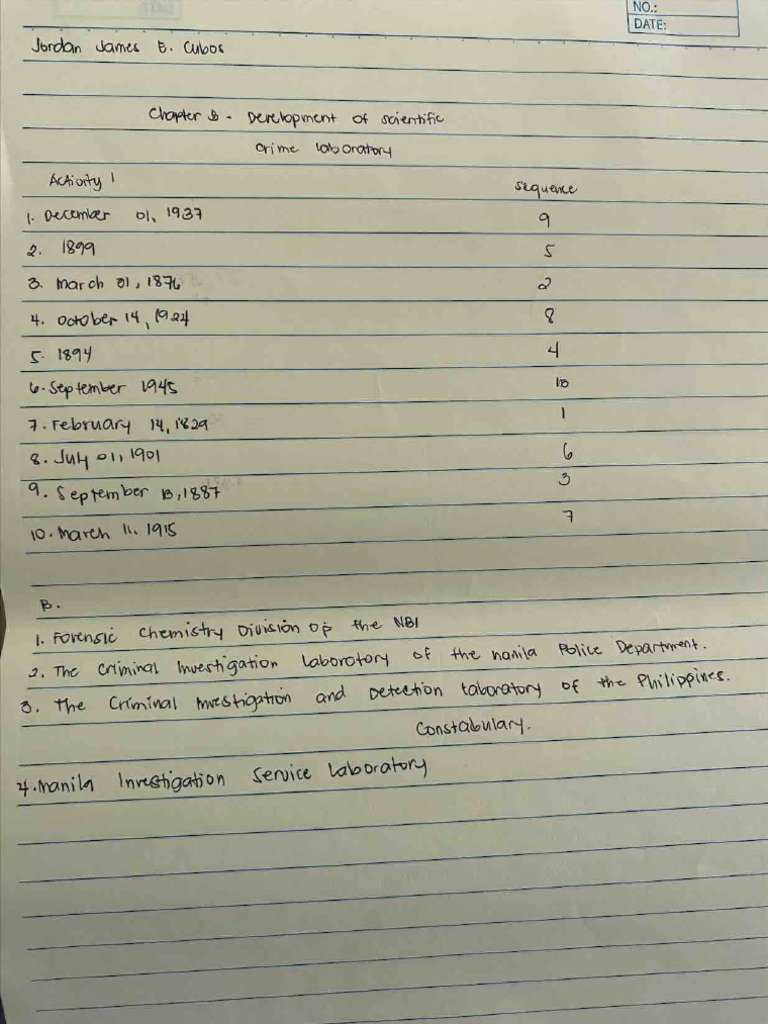 NO.:
DATE:
Jordan James E. Cubos
Chapter - Development of scientific
crime laboratory
Activity 1
sequence
1. December 01, 1937 9
2. 1899 5
3. march 01, 1876 2
4. october 14, 1924 8
5. 1894 4
6. September 1945 10
7. February 14, 1829 1
8. July 01, 1901 6
9. September 13, 1887 3
10. March 11. 1915 7
B.
1. Forensic Chemistry Division of the NBI
2. The Criminal Investigation Laborotory of the manila Police Department.
3. The Criminal Investigation and Detection Laboratory of the Philippines.
Constabulary.
4. Manila Investigation Service Laboratory